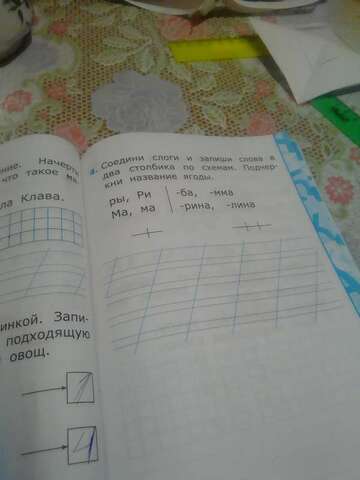 ние. Начерти
что такое ма
ла Клава.
инкой. Запи-
подходящую
овощ.
4. Соедини слоги и запиши слова в
два столбика по схемам. Подчер-
кни название ягоды.
ры, Ри -ба, -мма
Ма, ма -рина, -лина